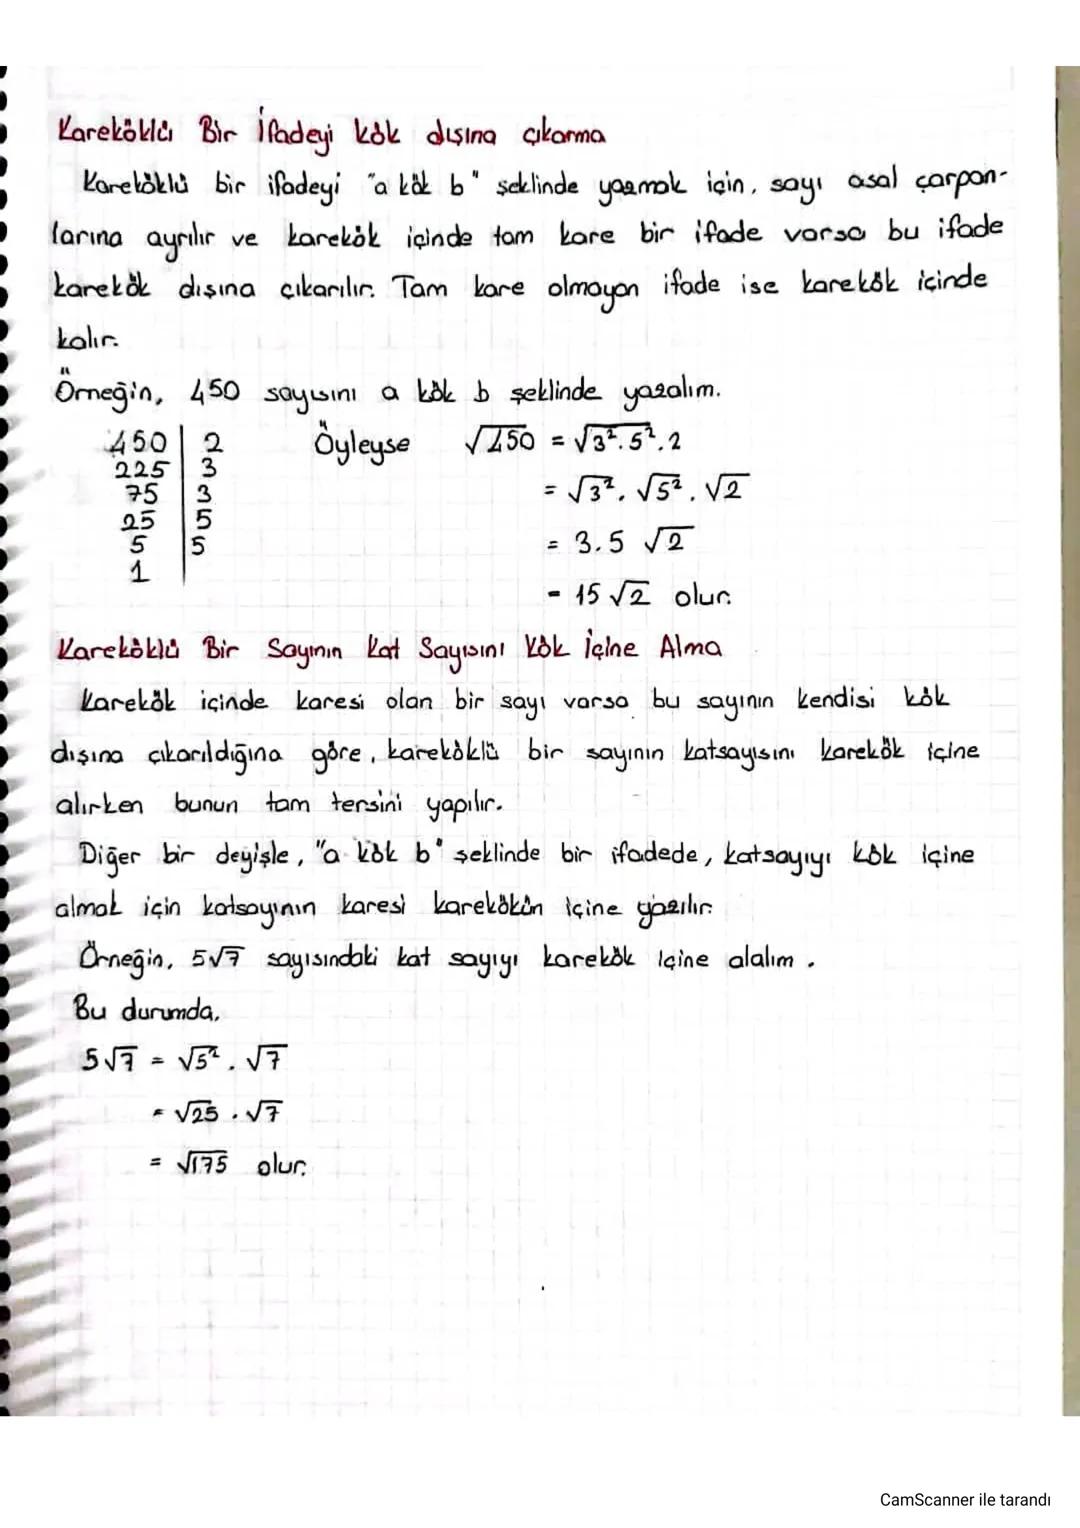 Kareköklü Bir İfadeyi kök dışına çıkarma
Kareköklü bir ifadeyi "a kök b" şeklinde yazmak için, sayı asal çarpan-
larına ayrılır ve karekök içinde tam kare bir ifade varsa bu ifade
karekök dışına çıkarılır. Tam kare olmayan ifade ise karekök içinde
kalır.
Örneğin, 450 sayısını a kök b şeklinde yazalım.
450 | 2 Öyleyse √450 = √3².5².2
225 | 3
75 | 3 = √3² . √5² . √2
25 | 5
5 | 5 = 3.5 √2
1 |
= 15 √2 olur.
Kareköklü Bir Sayının Kat Sayısını Kök İçine Alma
Karekök içinde karesi olan bir sayı varsa bu sayının kendisi kök
dışına çıkarıldığına göre, kareköklü bir sayının katsayısını karekök içine
alırken bunun tam tersini yapılır.
Diğer bir deyişle, "a kök b" şeklinde bir ifadede, katsayıyı kök içine
almak için katsayının karesi karekökün içine yazılır.
Örneğin, 5√7 sayısındaki kat sayıyı karekök içine alalım.
Bu durumda,
5√7 = √5² . √7
= √25 . √7
= √175 olur.
CamScanner ile tarandı